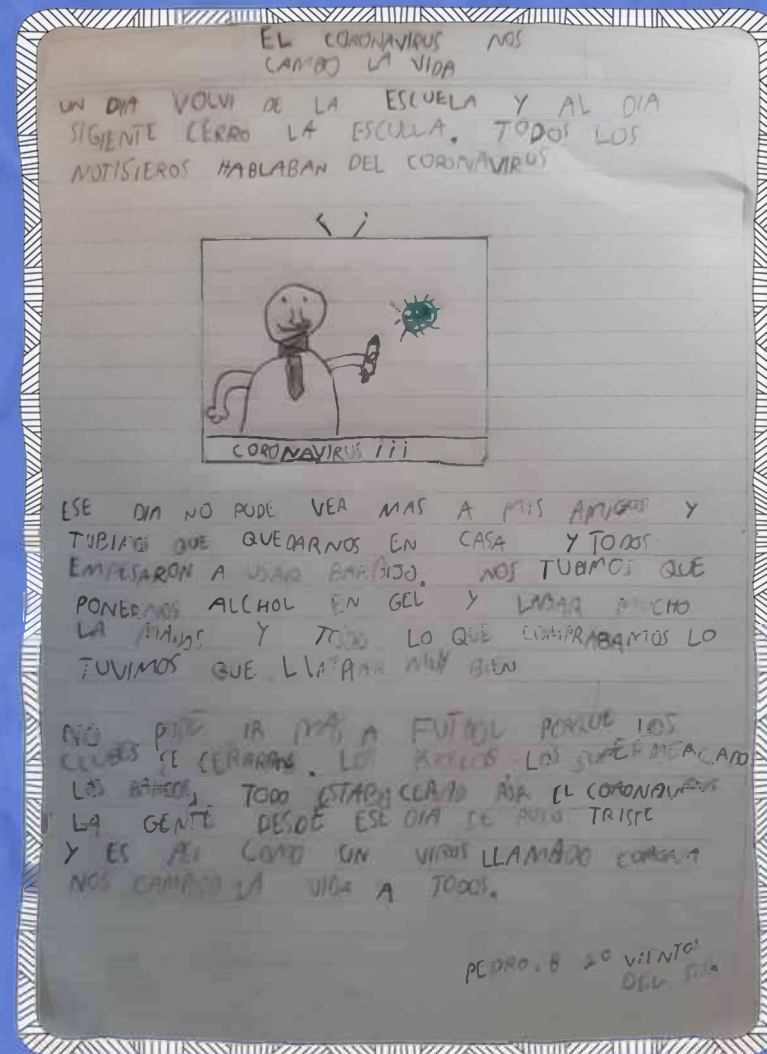 EL CORONAVIRUS NOS
CAMBIO LA VIDA
UN DIA VOLVI DE LA ESCUELA Y AL DIA
SIGIENTE CERRO LA ESCULLA. TODOS LOS
NOTISIEROS HABLABAN DEL CORONAVIRUS
CORONAVIRUS ¡¡¡
ESE DIA NO PUDE VER MAS A MIS AMIGOS Y
TUBIMOS QUE QUEDARNOS EN CASA Y TODOS
EMPESARON A USAR BARBIJO. NOS TUBIMOS QUE
PONERNOS ALCHOL EN GEL Y LABAR MUCHO
LA MANOS Y TODO LO QUE COMPRABAMOS LO
TUVIMOS QUE MUY BIEN
NO PUDE IR MAS A FUTBOL PORQUE LOS
CLUBES SE CERRARAN. LOS LOS SUPERMERCADO
LOS BANCOS, TODO ESTABA POR EL CORONAVIRUS
LA GENTE DESDE ESE DIA SE PUSO TRISTE
Y ES ASI COMO UN VIRUS LLAMADO CORONA
NOS CAMBIO LA VIDA A TODOS.
PEDRO. B 2º VIENTOS
DEL SUR